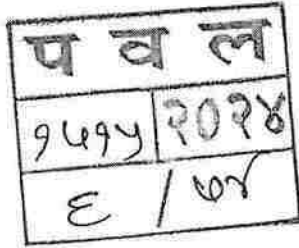 प व ल
१५१५ २०२४
६ / ७४